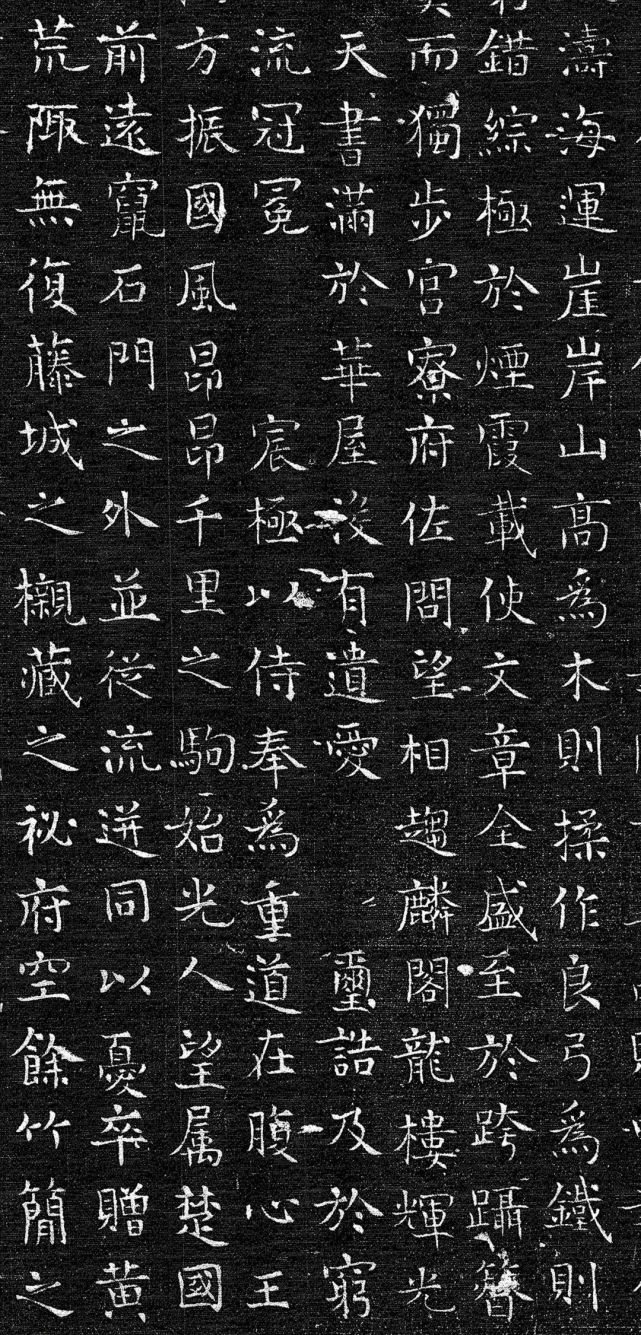 濤海運崖岸山高為木則揉作良弓為鐵則
錯綜極於煙霞載使文章全盛至於跨躡簪
而獨步宮寮府佐問望相趨麟閣龍樓輝光
天書滿於華屋沒有遺愛 璽誥及於窮
流冠冕 宸極以侍奉為重道在腹心王
方振國風昂昂千里之駒始光人望属楚國
前遠竄石門之外並從流迸同以憂卒贈黃
荒陬無復藤城之櫬藏之祕府空餘竹簡之